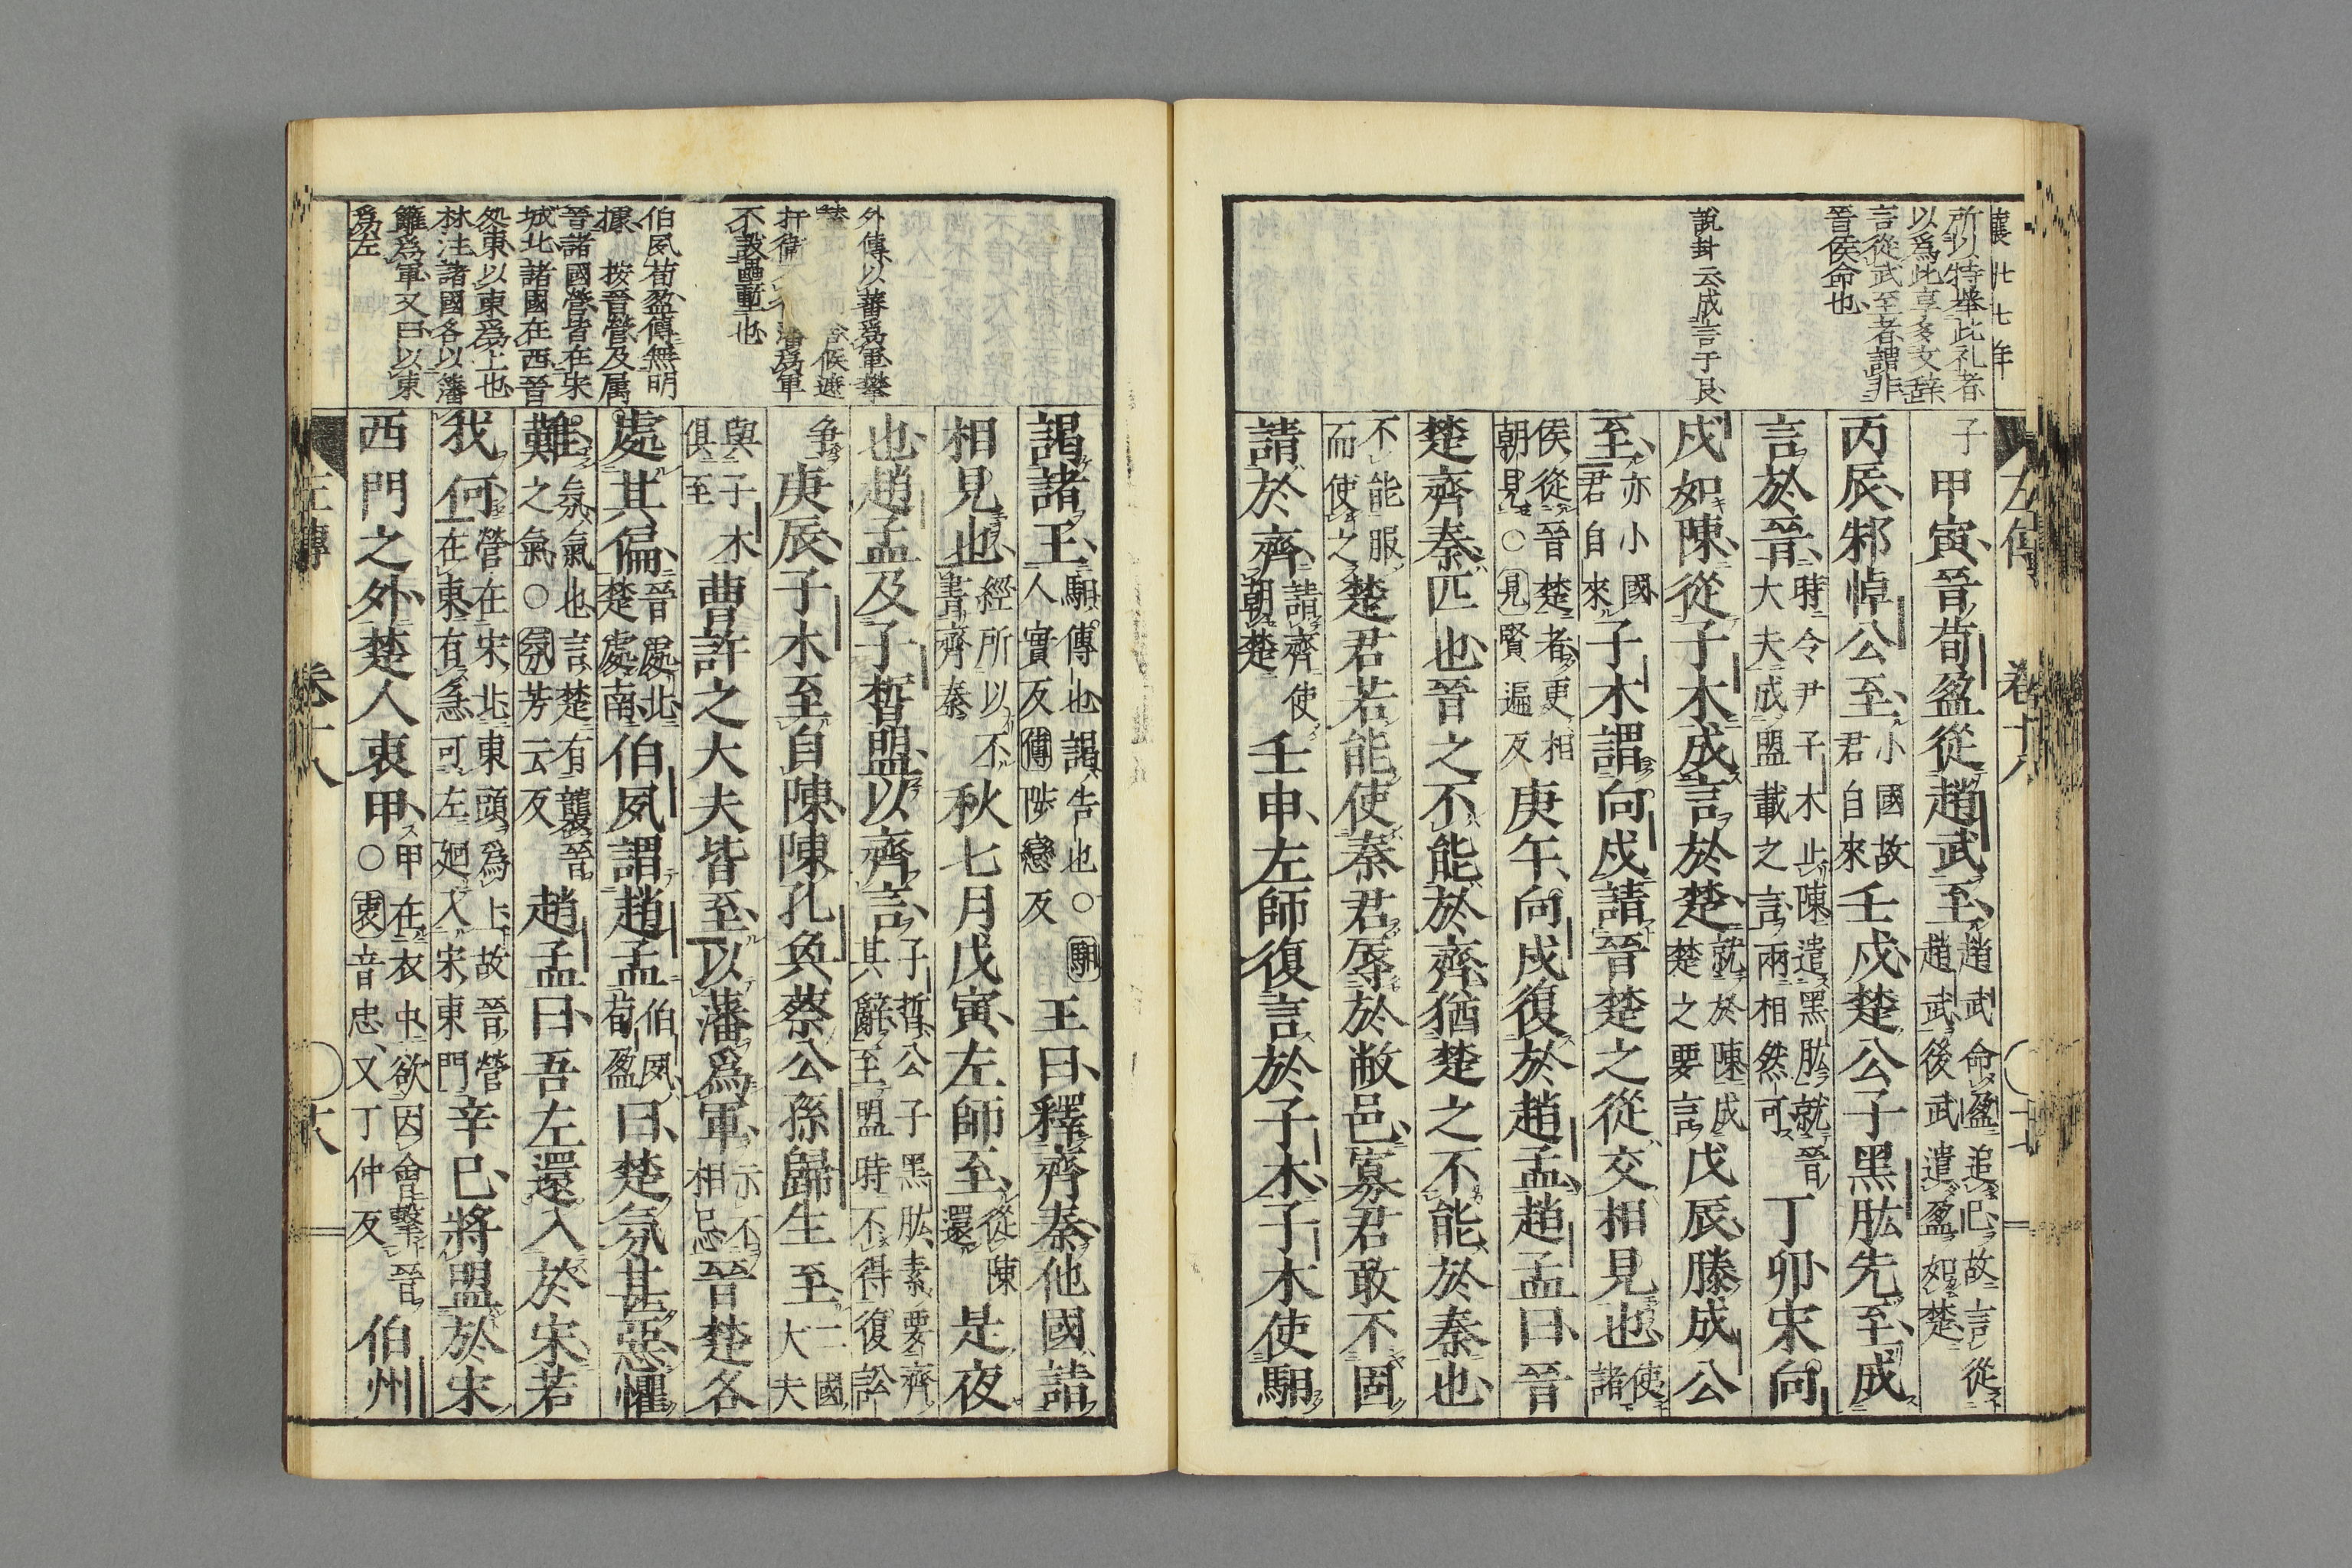 襄廿七年
所以特舉此礼者
以爲此享多文辞
言從武至者謂非
晉侯命也
說封云成言于良
左傳 卷十八 十七
子甲寅晉荀盈從趙武至趙武命盈追己故言從趙武後武遣盈如楚
丙辰邾悼公至小國故君自來壬戌楚公子黑肱先至成
言於晉時令尹子木止陳遣黑肱就晉大夫成盟載之言兩相然可丁卯宋向
戌如陳從子木成言於楚就於陳成楚之要言戊辰滕成公
至亦小國君自來子木謂向戌請晉楚之從交相見也使諸
侯從晉楚者更相朝見○見賢遍反庚午向戌復於趙孟趙孟曰晉
楚齊秦匹也晉之不能於齊猶楚之不能於秦也
不能服而使之楚君若能使秦君辱於敝邑寡君敢不固
請於齊請齊使朝楚壬申左師復言於子木子木使馹
外傳以蕃爲軍攀
候遮
扞衛 藩爲軍
不設壘塹也
伯夙荀盈傳無明
據 按晉營及属
晉諸國營皆在宋
城北諸國在西晉
処東以東爲上也
林注諸國各以藩
籬爲軍又曰以東
爲左
謁諸王馹傳也謁告也○馹人實反傳陟戀反王曰釋齊秦他國請
相見也經所以不書齊秦秋七月戊寅左師至從陳還是夜
也趙孟及子晳盟以齊言子晳公子黑肱素要齊其辭至盟時不得復訟
争庚辰子木至自陳陳孔奐蔡公孫歸生至二國大夫
與子木俱至曹許之大夫皆至以藩爲軍示不相忌晉楚各
處其偏晉處北楚處南伯夙謂趙孟伯夙荀盈曰楚氛甚惡懼
難氛氣也言楚有襲晉之氣○氛芳云反趙孟曰吾左還入於宋若
我何營在宋北東頭爲上故晉營在東有急可左廻入宋東門辛巳將盟於宋
西門之外楚人衷甲甲在衣中欲因會擊晉○衷音忠又丁仲反伯州
左傳 卷十八 十八